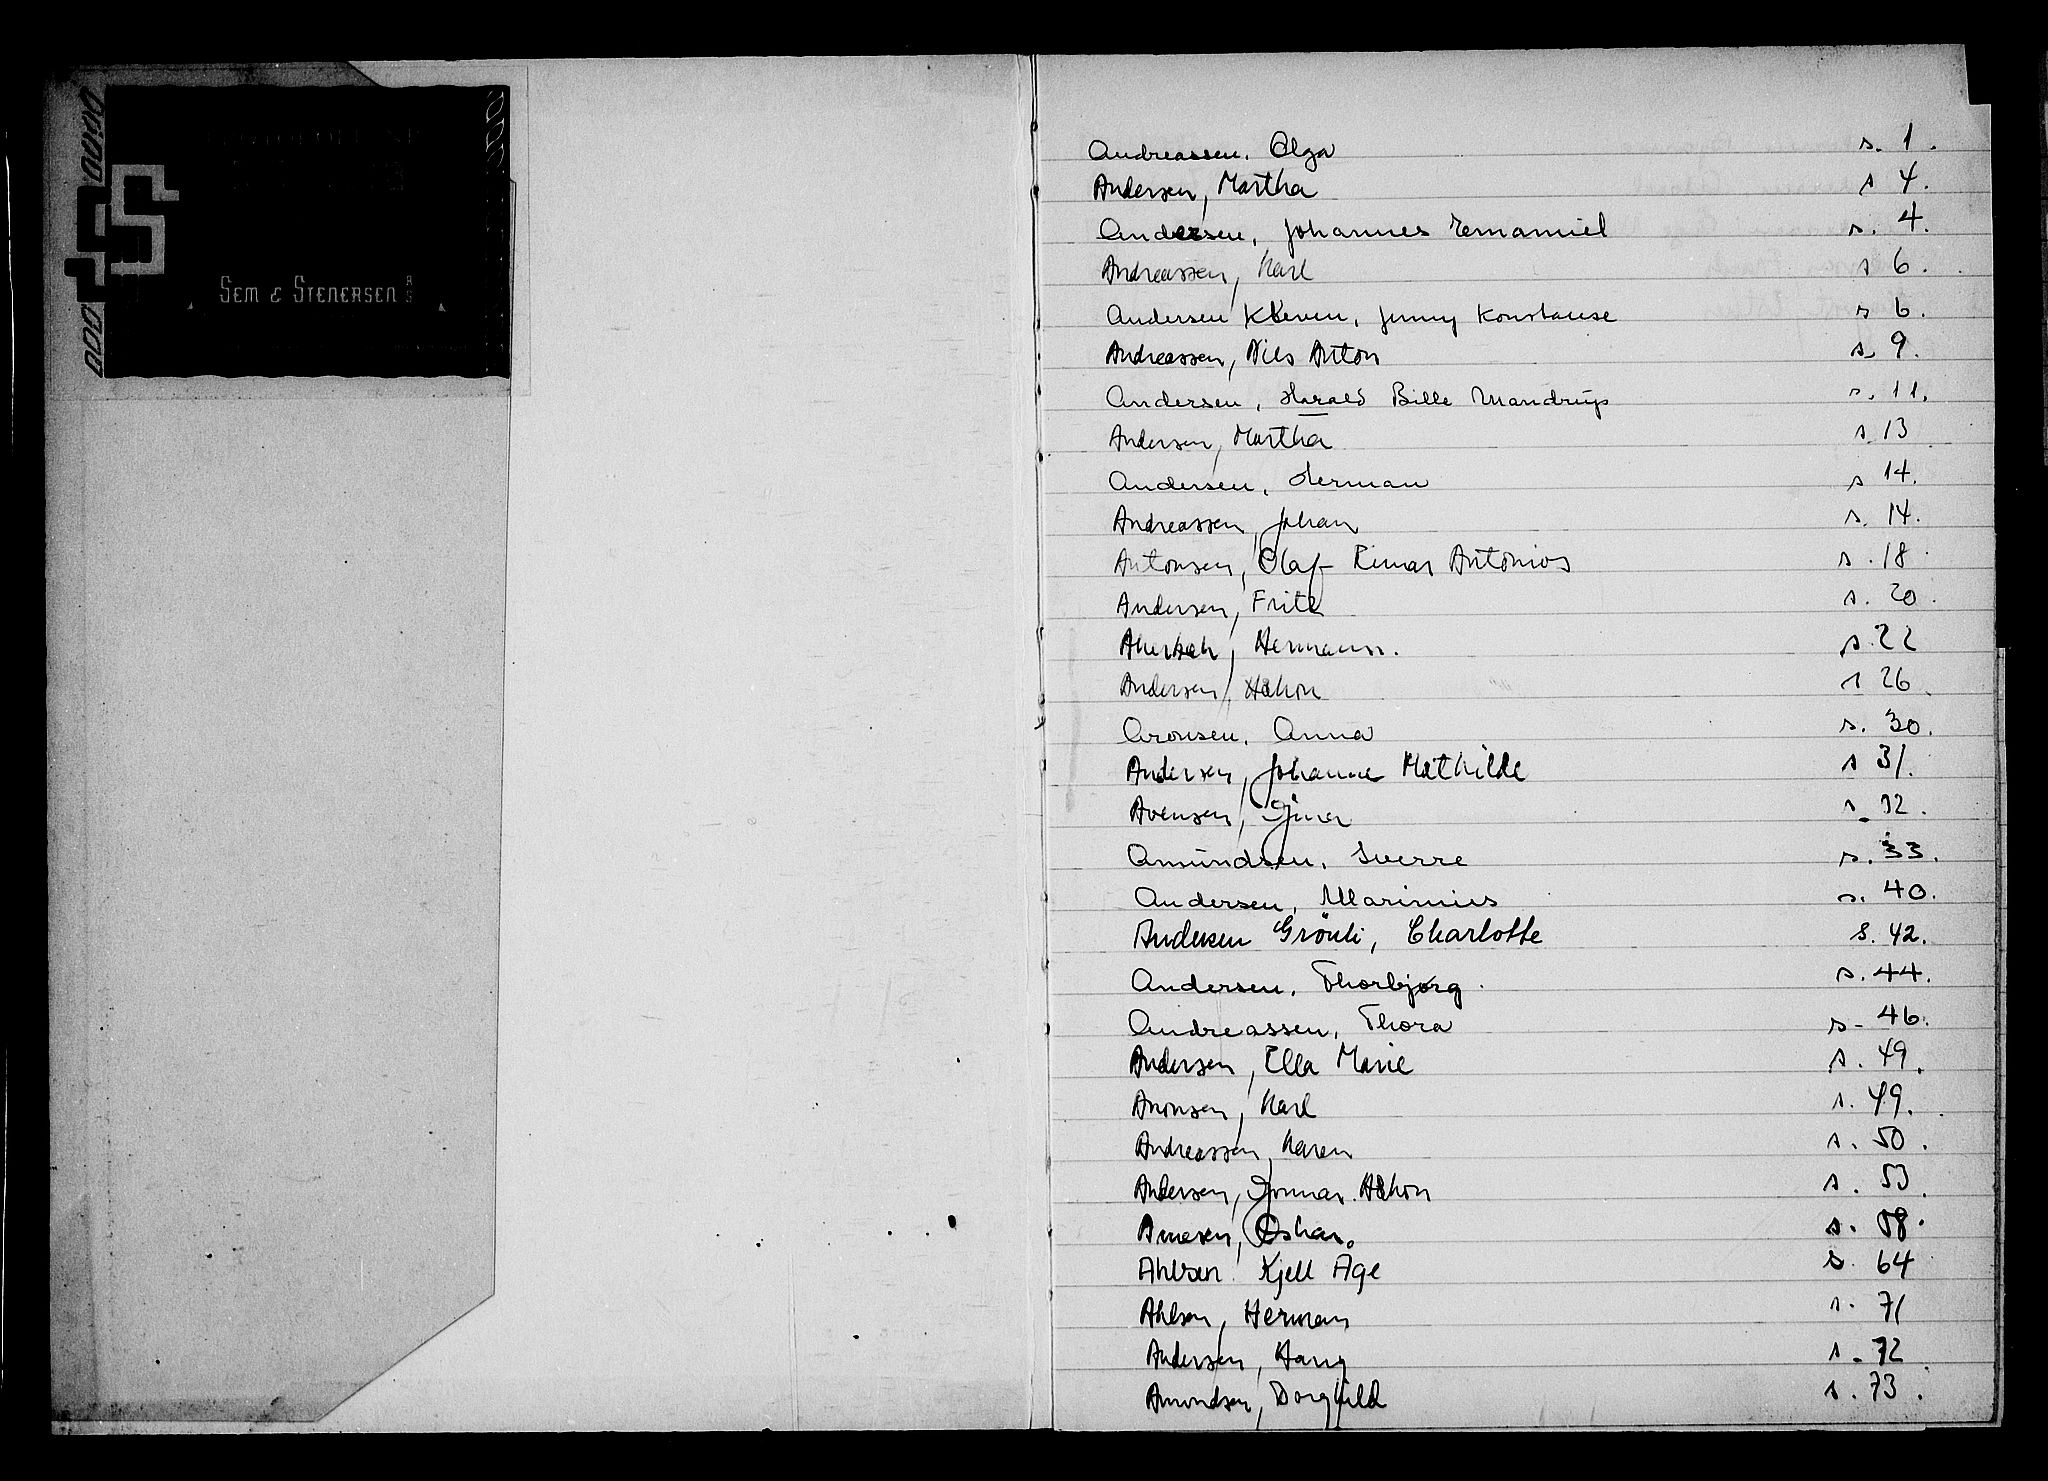 SEM & STENERSEN A/S
Andreassen, Olga s. 1.
Andersen, Martha s 4.
Andersen, Johannes Emanuel s. 4.
Andreassen, Karl s 6.
Andersen Kleven, Jenny Konstanse s 6.
Andreassen, Nils Anton s. 9.
Andersen, Harald Bille Mandrup s. 11.
Andersen, Martha s. 13
Andersen, Herman s 14.
Andreassen, Johan s. 14.
Antonsen, Olaf Einar Antonius s. 18.
Andersen, Fritz s. 20.
Hermann. s. 22
Andersen, Håkon s 26.
Aronsen, Anna s. 30.
Andersen, Johanne Mathilde s 31.
Avensen, s. 32.
Amundsen, Sverre s. 33.
Andersen, Marinius s. 40.
Andersen Grönli, Charlotte s. 42.
Andersen, Thorbjørg s. 44.
Andreassen, Thora s. 46.
Andersen, Ella Marie s. 49.
Aronsen, Karl s. 49.
Andreassen, Karen s. 50.
Andersen, Gunnar Håkon s. 53.
Arnesen, Oskar. s. 58.
Ahlsen. Kjell Åge s. 64
Ahlsen, Herman s. 71
Andersen, Harry s. 72.
Amundsen, Borghild s. 73.